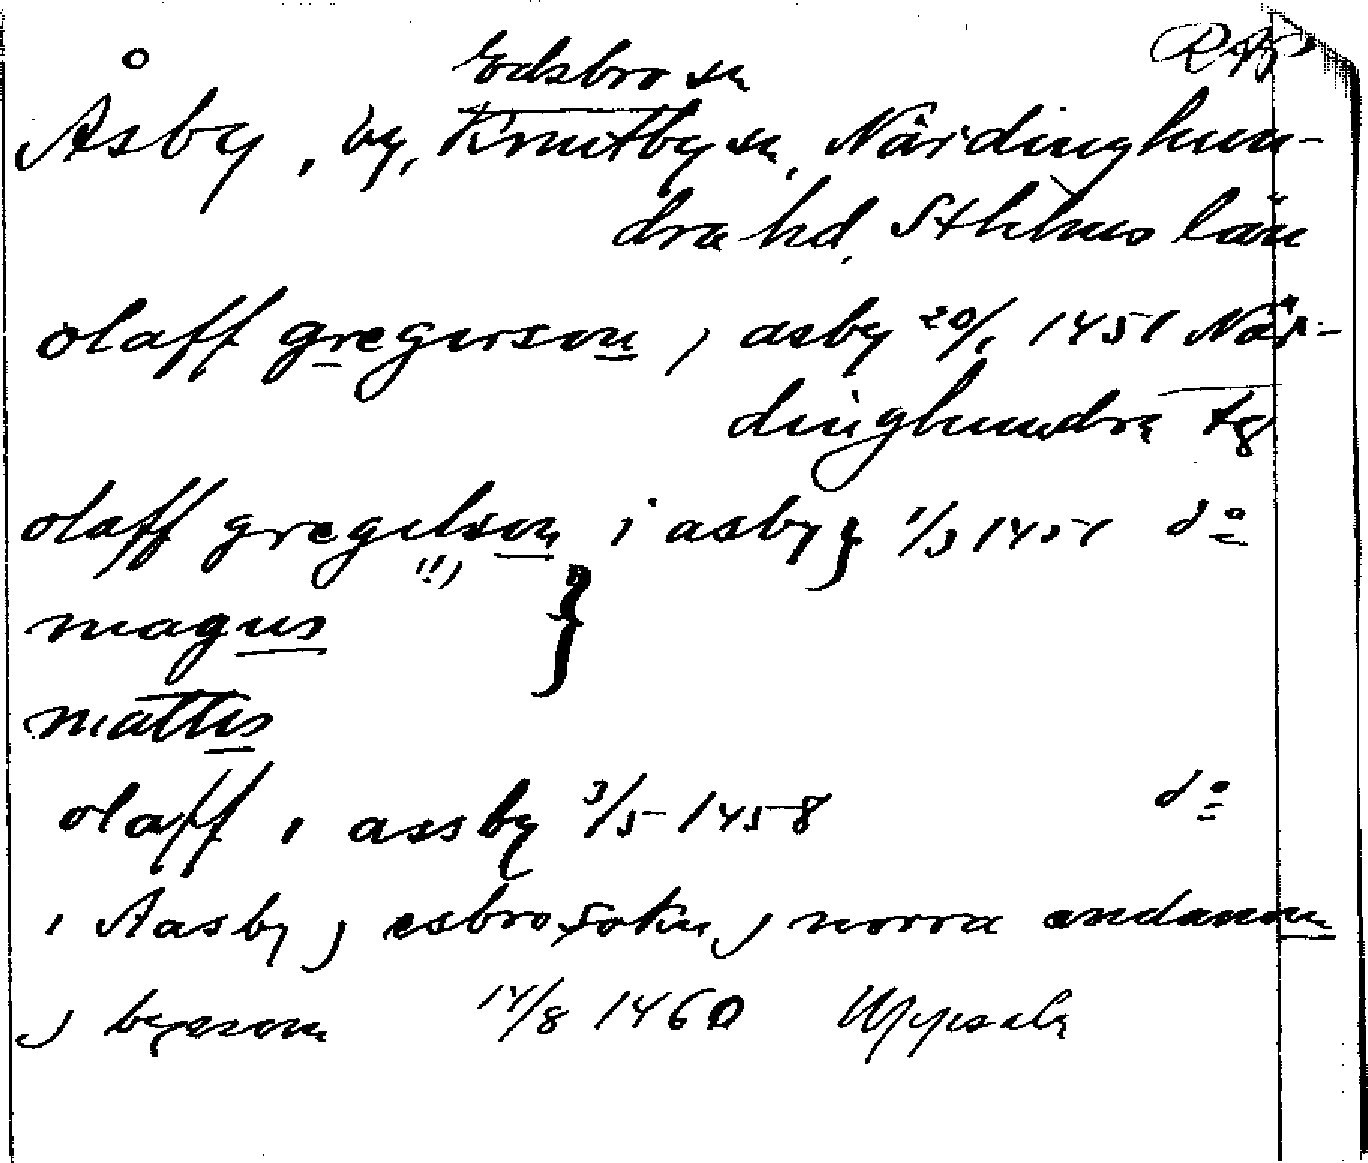 RAP
Edsbro sn
Åsby, by, Knutby sn, Närdinghun-
dra hd, Sthlms län
olaff gregerson j asby 20/1 1451 När-
dinghundra tg
olaff gregelson i asby } 1/3 1451 do
(!!)
magnus }
mattis
olaff i assby 3/5 1458 do
i Aasby j esbro sokn j norra endanom
j byenom 14/8 1460 Uppsala